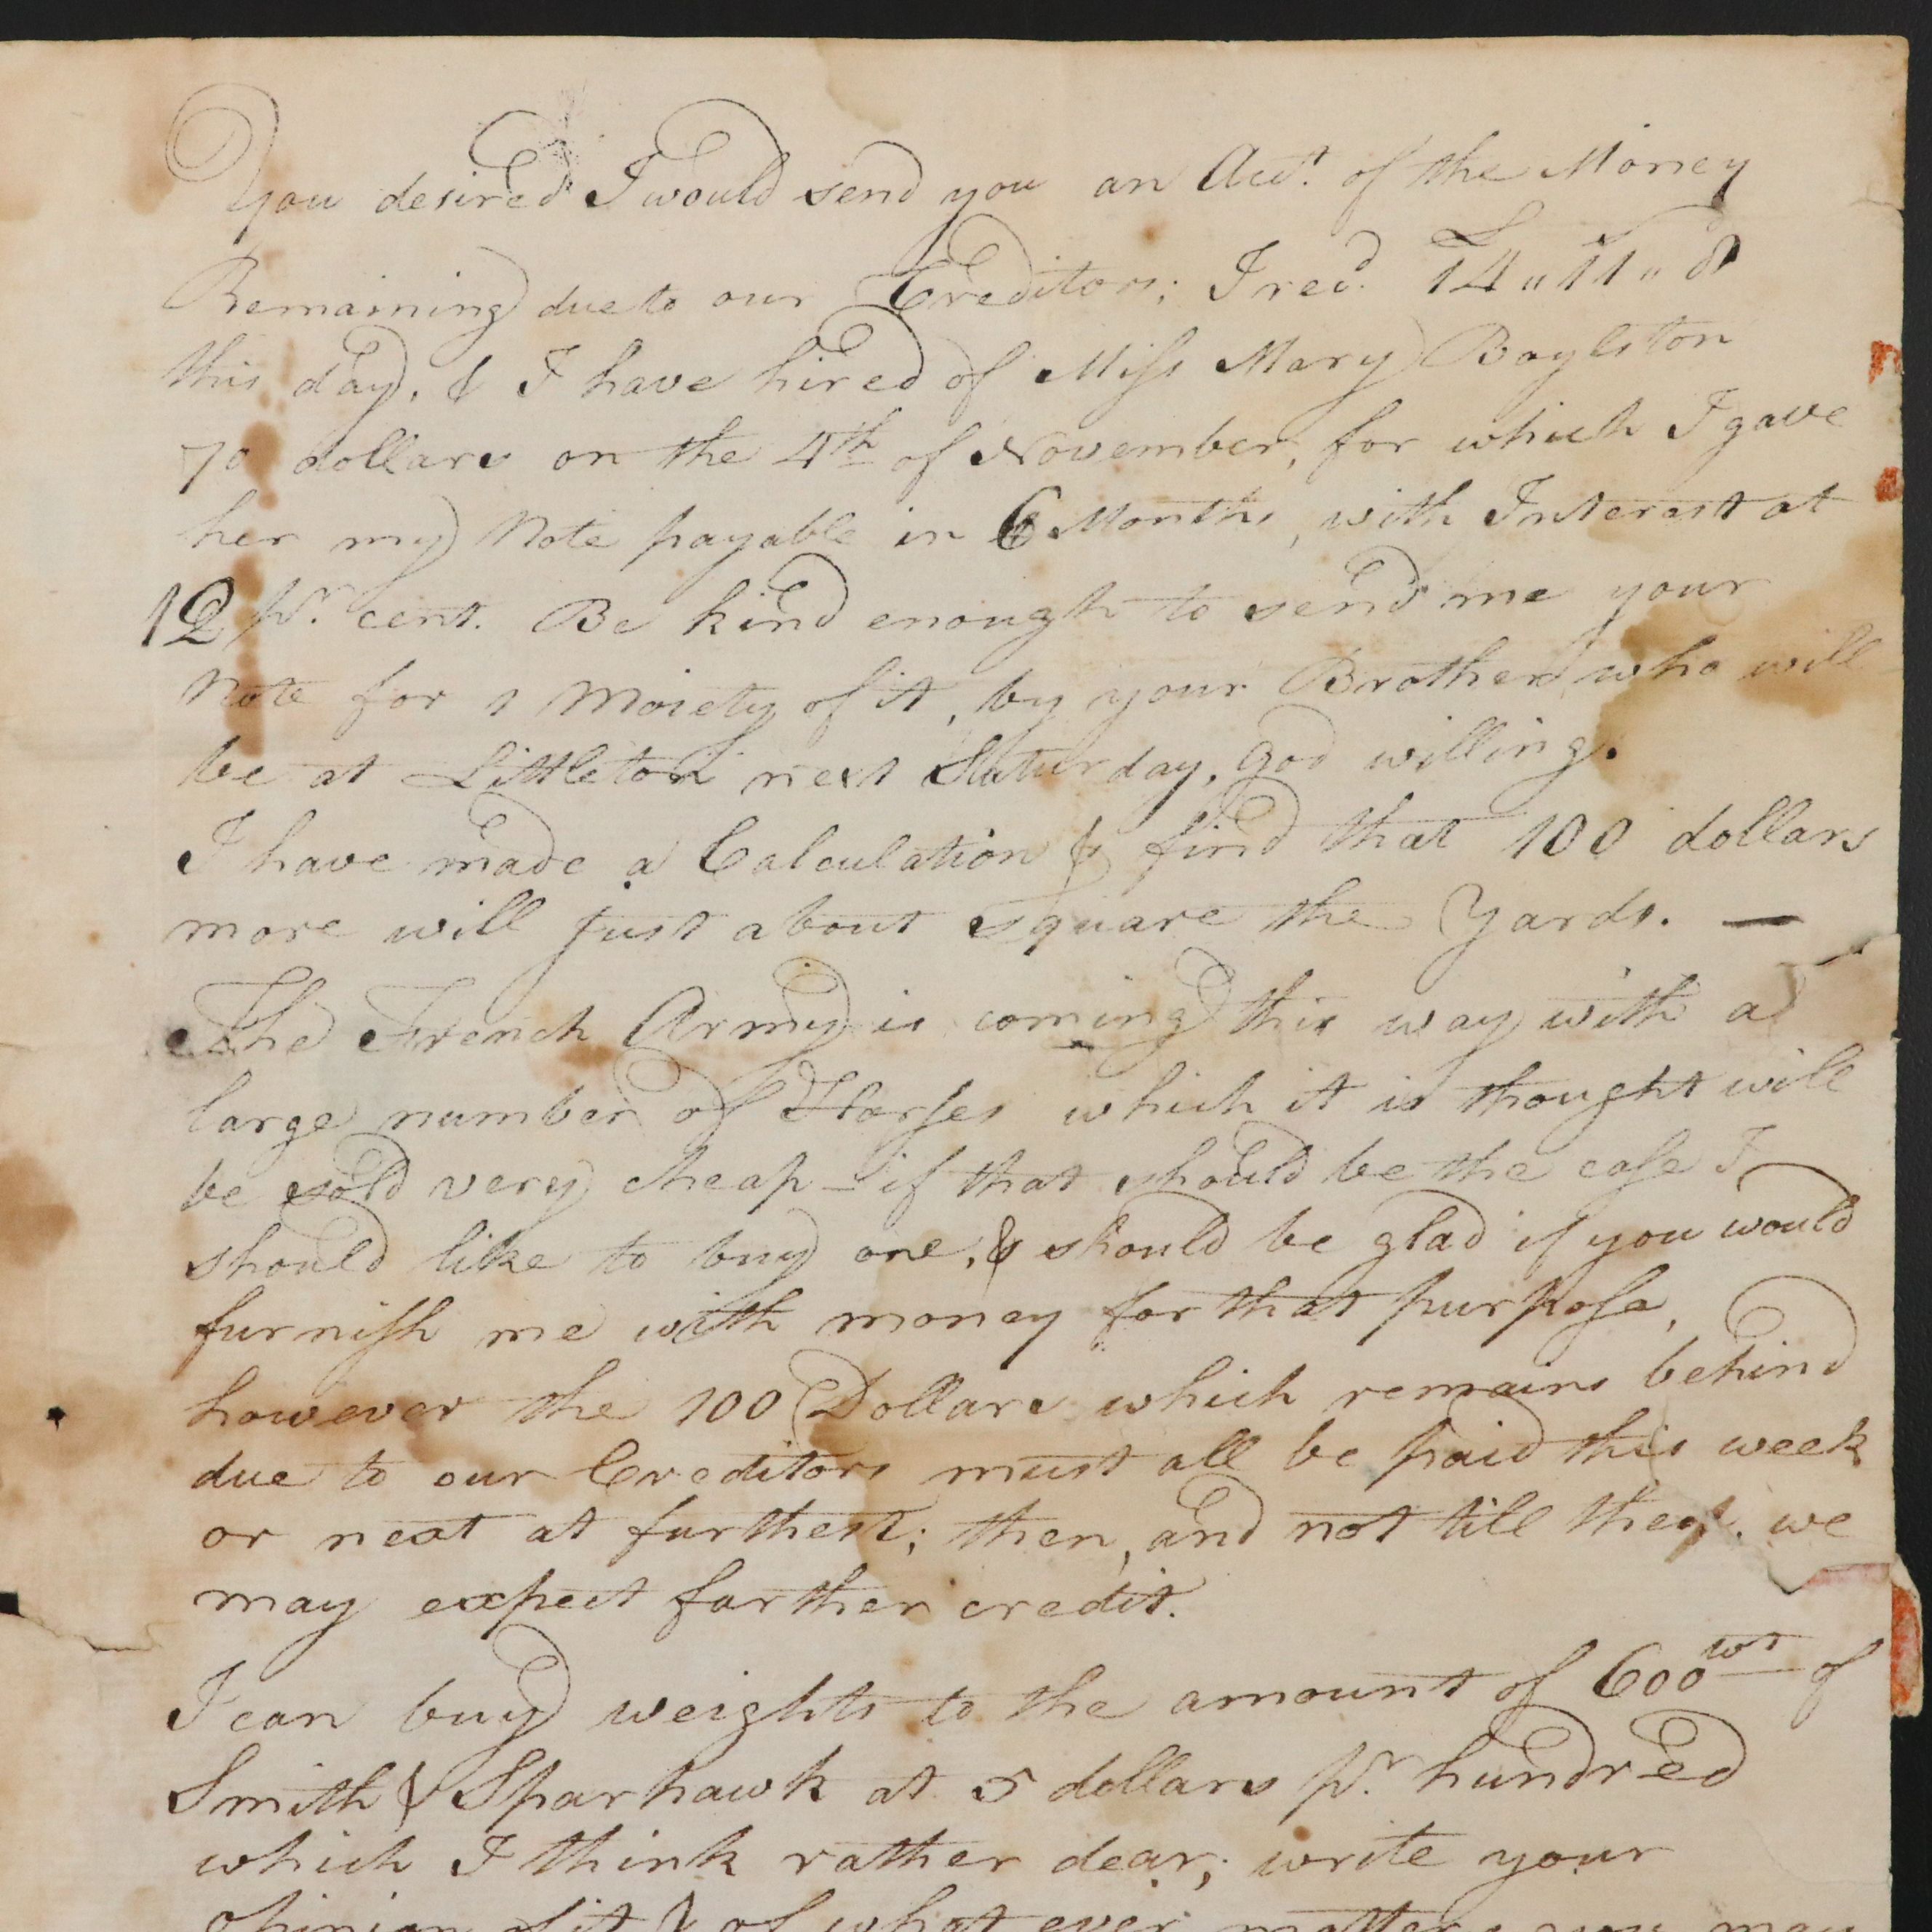 You desired I would send you an Acct. of the Money
Remaining due to our Creditors; I recd. £14"11"8
this day, & I have hired of Miss Mary Boylston
70 dollars on the 4th of November, for which I gave
her my Note payable in 6 Months, with Interest at
12 pr. cent. Be kind enough to send me your
Note for 1 Moiety of it, by your Brother who will
be at Littleton next Saturday, God willing.
I have made a Calculation & find that 100 dollars
more will just about square the Yards. —
The French Army is coming this way with a
large number of Horses which it is thought will
be sold very cheap – if that should be the case I
should like to buy one, & should be glad if you would
furnish me with money for that purpose,
however the 100 Dollars which remains behind
due to our Creditors must all be paid this week
or next at furthest; then, and not till then, we
may expect farther credit.
I can buy weights to the amount of 600wt of
Smith & Sparhawk at 5 dollars pr. hundred
which I think rather dear; write your
opinion of it & of what ever matters you may